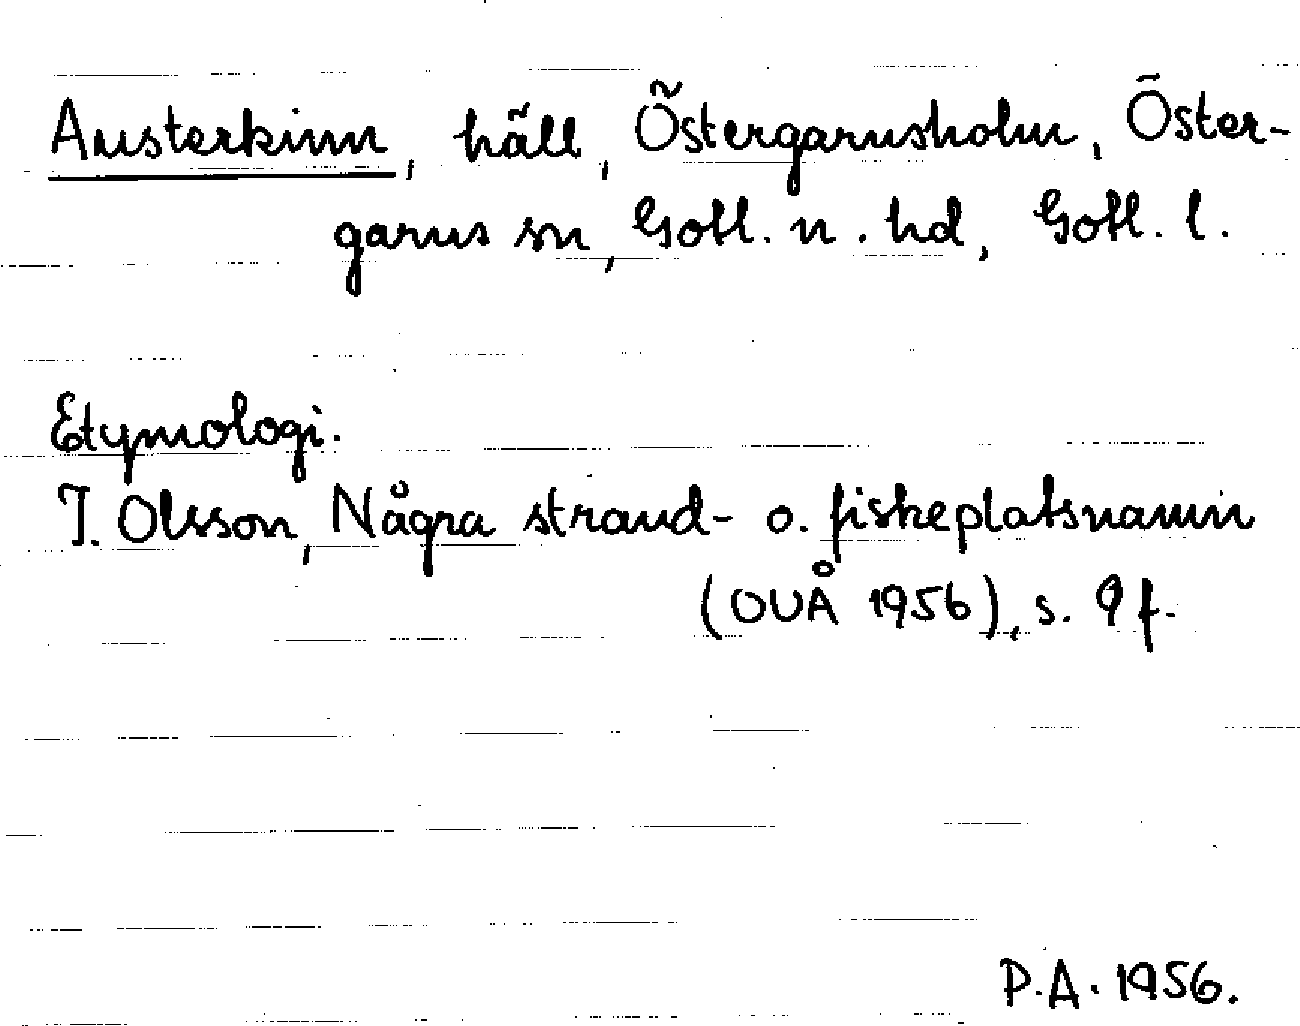 Austerkinn, häll, Östergarnsholm, Öster-
garns sn, Gotl. n. hd, Gotl. l.
Etymologi.
I. Olsson, Några strand- o. fiskeplatsnamn
(OUÅ 1956), s. 9 f.
P.A. 1956.